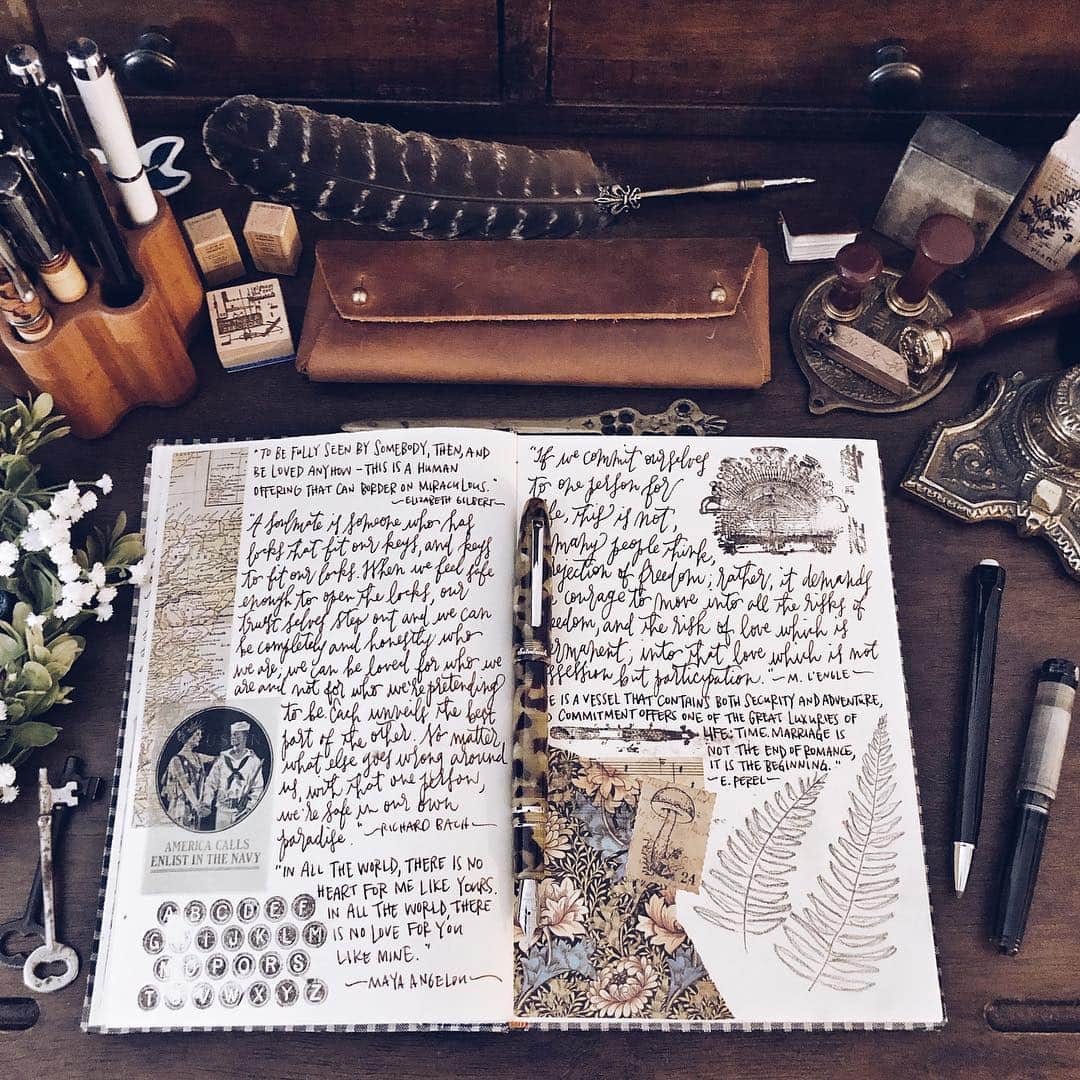 "TO BE FULLY SEEN BY SOMEBODY, THEN, AND
BE LOVED ANYHOW - THIS IS A HUMAN
OFFERING THAT CAN BORDER ON MIRACULOUS."
~ELIZABETH GILBERT~
"A soulmate is someone who has
locks that fit our keys, and keys
to fit our locks. When we feel safe
enough to open the locks, our
truest selves step out and we can
be completely and honestly who
we are; we can be loved for who we
are and not for who we're pretending
to be. Each unveils the best
part of the other. No matter
what else goes wrong around
us, with that one person,
we're safe in our own
paradise."
~RICHARD BACH~
AMERICA CALLS
ENLIST IN THE NAVY
"IN ALL THE WORLD, THERE IS NO
HEART FOR ME LIKE YOURS.
IN ALL THE WORLD, THERE
IS NO LOVE FOR YOU
LIKE MINE."
~MAYA ANGELOU~
A B C D E F
G H I J K L M
N O P Q R S
T U V W X Y Z
"If we commit ourselves
to one person for
life, this is not,
many people think,
rejection of freedom; rather, it demands
courage to move into all the risks of
freedom, and the risk of love which is
permanent; into that love which is not
possession but participation." ~M. L'ENGLE~
IS A VESSEL THAT CONTAINS BOTH SECURITY AND ADVENTURE,
COMMITMENT OFFERS ONE OF THE GREAT LUXURIES OF
LIFE: TIME. MARRIAGE IS
NOT THE END OF ROMANCE,
IT IS THE BEGINNING."
~E. PEREL~
24